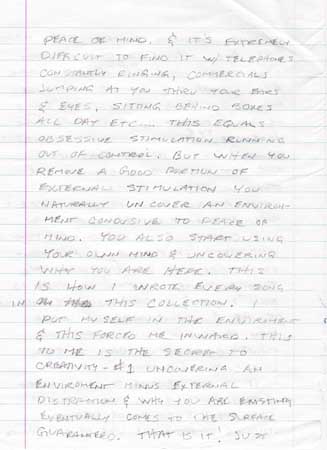 PEACE OF MIND. & IT'S EXTREMELY
DIFFICULT TO FIND IT W/ TELEPHONES
CONSTANTLY RINGING, COMMERCIALS
JUMPING AT YOU THRU YOUR EARS
& EYES, SITTING BEHIND BOXES
ALL DAY ETC.... THIS EQUALS
OBSESSIVE STIMULATION RUNNING
OUT OF CONTROL. BUT WHEN YOU
REMOVE A GOOD PORTION OF
EXTERNAL STIMULATION YOU
NATURALLY UNCOVER AN ENVIRON-
MENT CONDUSIVE TO PEACE OF
MIND. YOU ALSO START USING
YOUR OWN MIND & UNCOVERING
WHY YOU ARE HERE. THIS
IS HOW I WROTE EVERY SONG
IN THIS COLLECTION. I
PUT MYSELF IN THE ENVIROMENT
& THIS FORCED ME INWARD. THIS
TO ME IS THE SECRET TO
CREATIVITY - #1 UNCOVERING AN
ENVIROMENT MINUS EXTERNAL
DISTRACTION & WHY YOU ARE EXISTING
EVENTUALLY COMES TO THE SURFACE
GUARANTEED. THAT IS IT! JUST